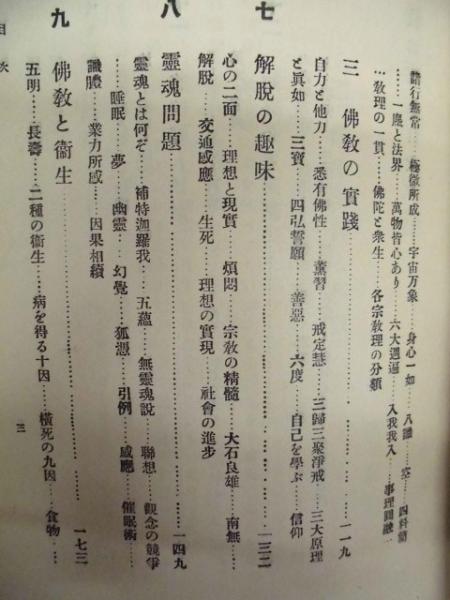 諸行無常……極微所成……宇宙万象……身心一如……八識……空……四料簡
……一塵と法界……萬物皆心あり……六大週遍……入我我入……事理圓融……
…敎理の一貫……佛陀と衆生……各宗敎理の分類
三 佛敎の實踐……一一九
自力と他力……悉有佛性……薫習……戒定慧……三歸三聚淨戒……三大原理
と眞如……三寶……四弘誓願……善惡……六度……自己を學ぶ……信仰
七 解脱の趣味……一三二
心の二面……理想と現實……煩悶……宗敎の精髓……大石良雄……南無……
解脱……交通感應……生死……理想の實現……社會の進步
八 靈魂問題……一四九
靈魂とは何ぞ……補特伽羅我……五蘊……無靈魂説……聯想……觀念の競爭
……睡眠……夢……幽靈……幻覺……狐憑……引例……感應……催眠術……
識體……業力所感……因果相續
九 佛敎と衞生……一七三
五明……長壽……二種の衞生……病を得る十因……橫死の九因……食物……
目次
三